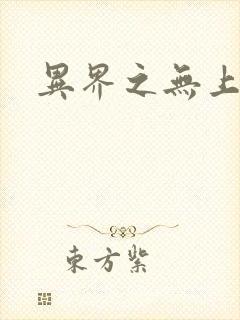 異界之無上
東方紫